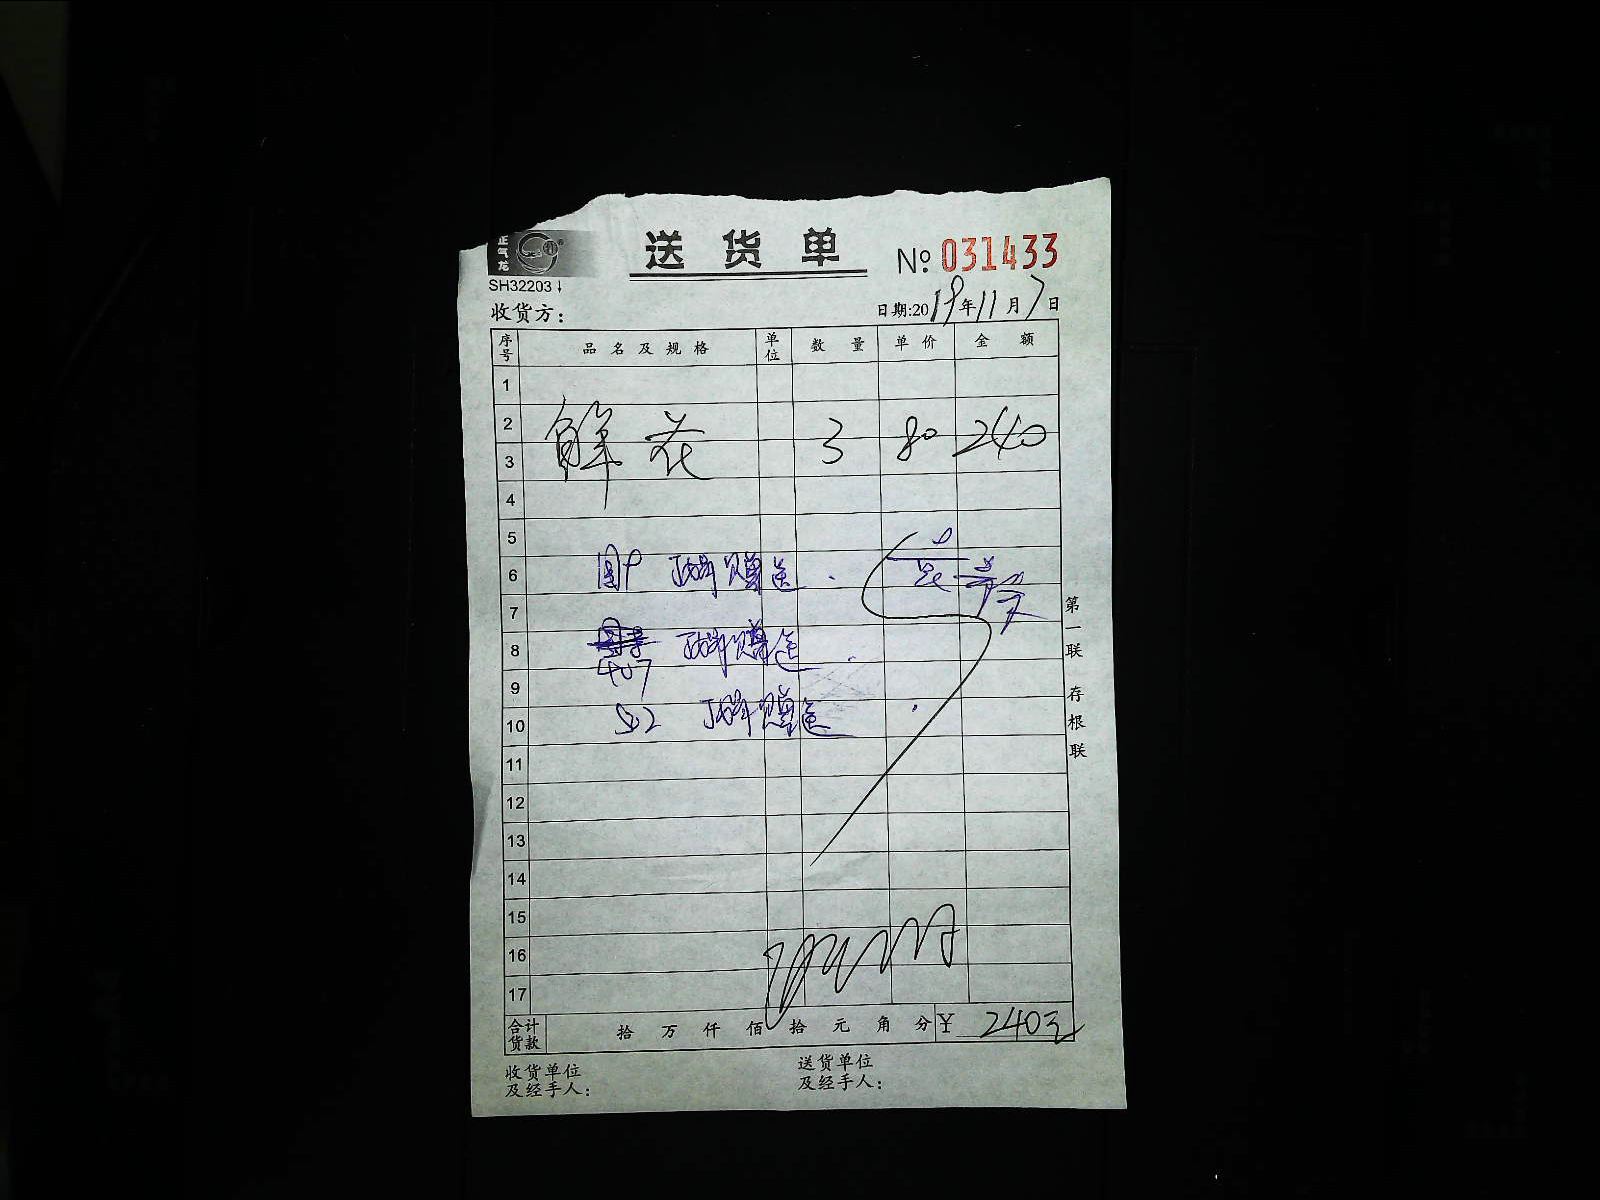 正气龙
送货单
№ 031433
SH32203↓
收货方：
日期:2019年11月7日
序号 品名及规格 单位 数量 单价 金额
1
2
鲜花 3 80 240
3
4
5
6
赠送
7
8
赠送
407
9
赠送
10
11
12
13
14
15
16
17
合计货款 拾万仟佰拾元角分 ¥ 240元
收货单位
及经手人：
送货单位
及经手人：
第一联 存根联